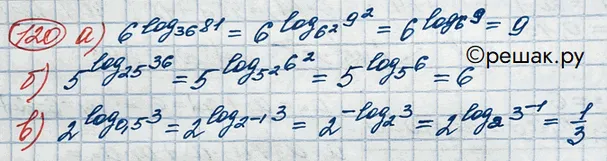 120 а) 6^{log_{36} 81} = 6^{log_{6^2} 9^2} = 6^{log_6 9} = 9
©решак.ру
б) 5^{log_{25} 36} = 5^{log_{5^2} 6^2} = 5^{log_5 6} = 6
в) 2^{log_{0,5} 3} = 2^{log_{2^{-1}} 3} = 2^{-log_2 3} = 2^{log_2 3^{-1}} = 1/3